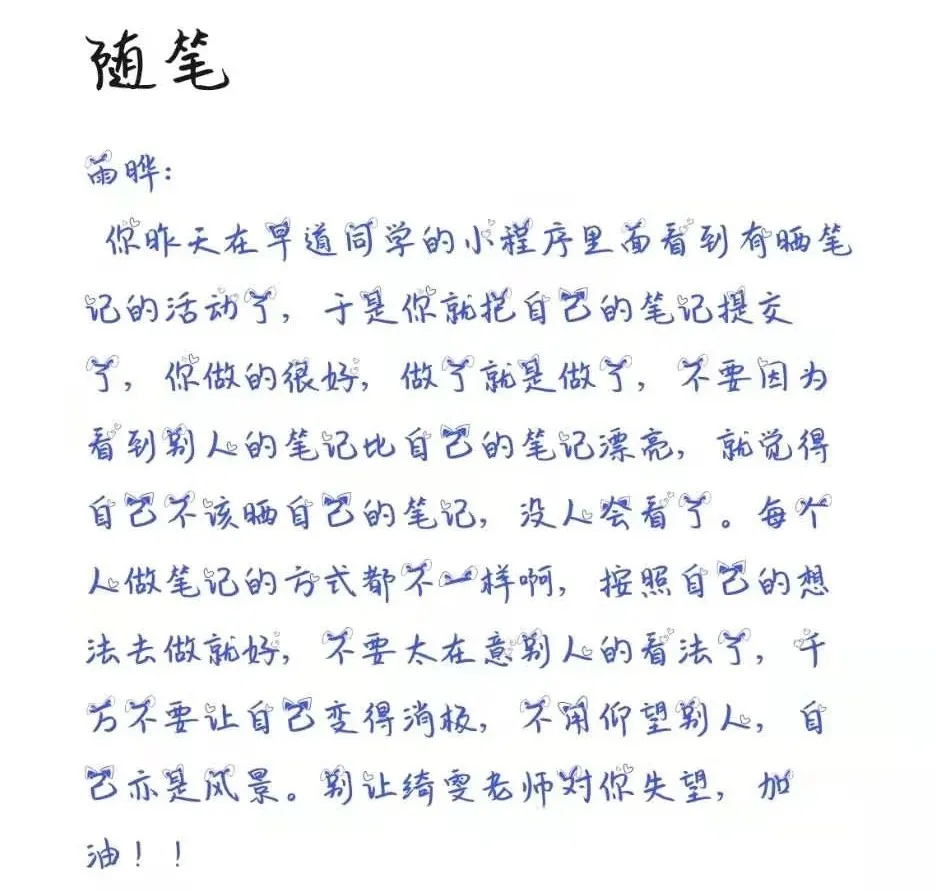 随笔
雨晔：
你昨天在早道同学的小程序里面看到有晒笔
记的活动了，于是你就把自己的笔记提交
了，你做的很好，做了就是做了，不要因为
看到别人的笔记比自己的笔记漂亮，就觉得
自己不该晒自己的笔记，没人会看了。每个
人做笔记的方式都不一样啊，按照自己的想
法去做就好，不要太在意别人的看法了，千
万不要让自己变得消极，不用仰望别人，自
己亦是风景。别让绮雯老师对你失望，加
油！！